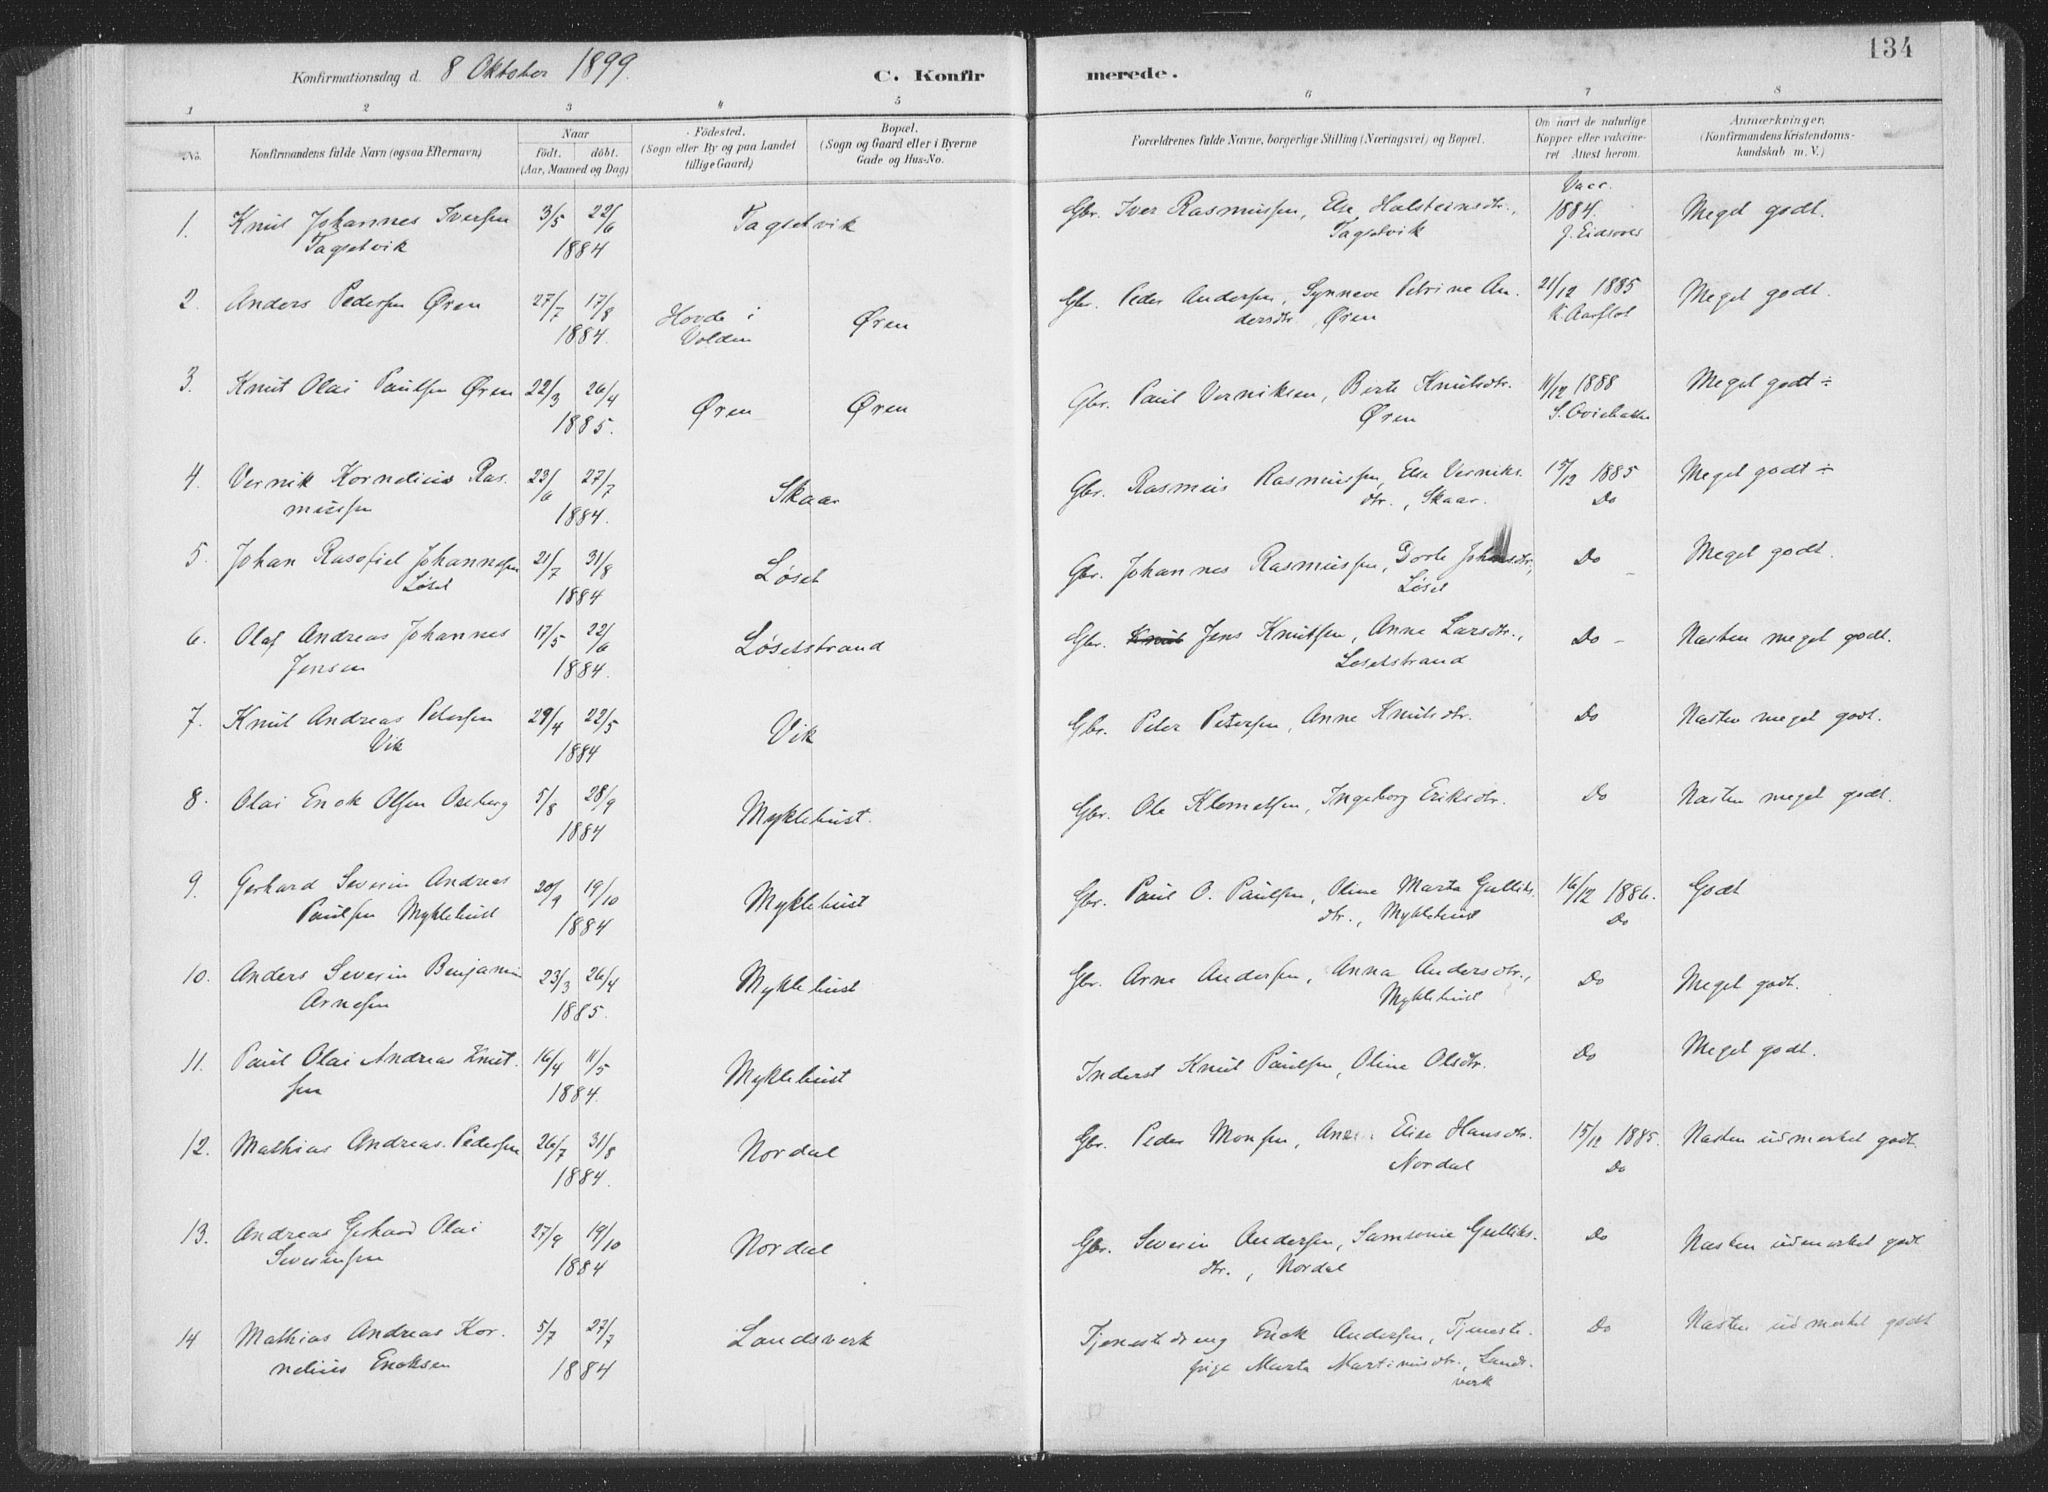 134
Konfirmationsdag d. 8 Oktober 1899. C. Konfirmerede.
1 2 3 4 5 6 7 8
No. Konfirmandens fulde Navn (ogsaa Efternavn) Naar födt. döbt. (Aar, Maaned og Dag) Födested. (Sogn eller By og paa Landet tillige Gaard) Bopæl. (Sogn og Gaard eller i Byerne Gade og Hus-No. Forældrenes fulde Navne, borgerlige Stilling (Næringsvei) og Bopæl. Om havt de naturlige Kopper eller vakcineret Attest herom. Anmærkninger. (Konfirmandens Kristendomskundskab m. V.)
1. Knut Johannes Iversen 3/5 22/6 Tagsetvik Gbr. Iver Rasmussen, Else Halsteinsdtr., Vacc. 1884. Meget godt.
Tagsetvik 1884 Tagsetvik J. Eidsvor
2. Anders Pedersen Øren 27/7 17/8 Hovde i Øren Gbr. Peder Andersen, Synneve Petrine An- 21/12 1885 Meget godt.
1884. Volden dersdtr., Øren K. Aarflot
3. Knut Olai Paulsen Øren 22/3 26/4 Øren Øren Gbr. Paul Verniksen, Berte Knutsdtr. 11/12 1888 Meget godt ÷
1885. Øren
4. Vernik Kornelius Ras- 23/6 27/7 Skaar Gbr. Rasmus Rasmussen, Else Verniks- 15/12 1885 Meget godt ÷
mussen 1884. dtr., Skaar. Do
5. Johan Rasofiel Johannesen 21/7 31/8 Løset Gbr. Johannes Rasmussen, Dorte Johansdtr., Do Meget godt.
Løset 1884 Løset
6. Olaf Andreas Johannes 17/5 22/6 Løsetstrand Gbr. Knut Jens Knutsen, Anne Larsdtr., Do Næsten meget godt.
Jensen 1884. Løsetstrand
7. Knut Andreas Petersen 29/4 22/5 Vik Gbr. Peter Petersen, Anne Knutsdtr. Do Næsten meget godt.
Vik 1884
8. Olai Enok Olsen Oseberg 5/8 28/9 Myklebust. Gbr. Ole Klemetsen, Ingeborg Eriksdtr. Do Næsten meget godt.
1884
9. Gerhard Severin Andreas 20/9 19/10 Myklebust Gbr. Paul O. Paulsen, Oline Marta Gulliks- 16/12 1886. Godt
Paulsen Myklebust 1884 dtr., Myklebust Do
10. Anders Severin Benjamin 23/3 26/4 Myklebust Gbr. Arne Andersen, Anna Andersdtr., Do Meget godt.
Arnesen 1885. Myklebust
11. Paul Olai Andreas Knut- 16/4 11/5 Myklebust Inderst Knut Paulsen, Oline Olsdtr. Do Meget godt.
sen 1884.
12. Mathias Andreas Pedersen 26/7 31/8 Nordal Gbr. Peder Monsen, Elise Hansdtr. 15/12 1885. Næsten udmerket godt.
1884. Nordal Do
13. Andreas Gerhard Olai 27/9 19/10 Nordal Gbr. Severin Andersen, Samsonie Gulliks- Do Næsten udmerket godt
Severinsen 1884 dtr., Nordal
14 Mathias Andreas Kor- 5/7 27/7 Landsverk Tjenestedreng Enok Andersen, Tjeneste- Do Næsten udmerket godt
nelius Enoksen 1884 pige Marta Martinusdtr., Lands-
verk